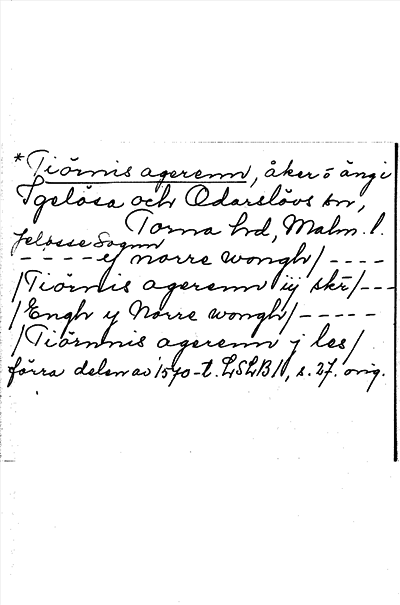 *Tiörnis agerenn, åker o äng i
Igelösa och Odarslövs sn,
Torna hd, Malm. l.
Jeløsse Sognn
- - - - ey norre wongh/ - - - -
/Tiörnis agerenn iij skr/ - - -
/Engh y Norre wongh/ - - - - -
/Tiörnnis agerenn j les/
förra delen av 1570-t. LSLB II, s. 27. orig.